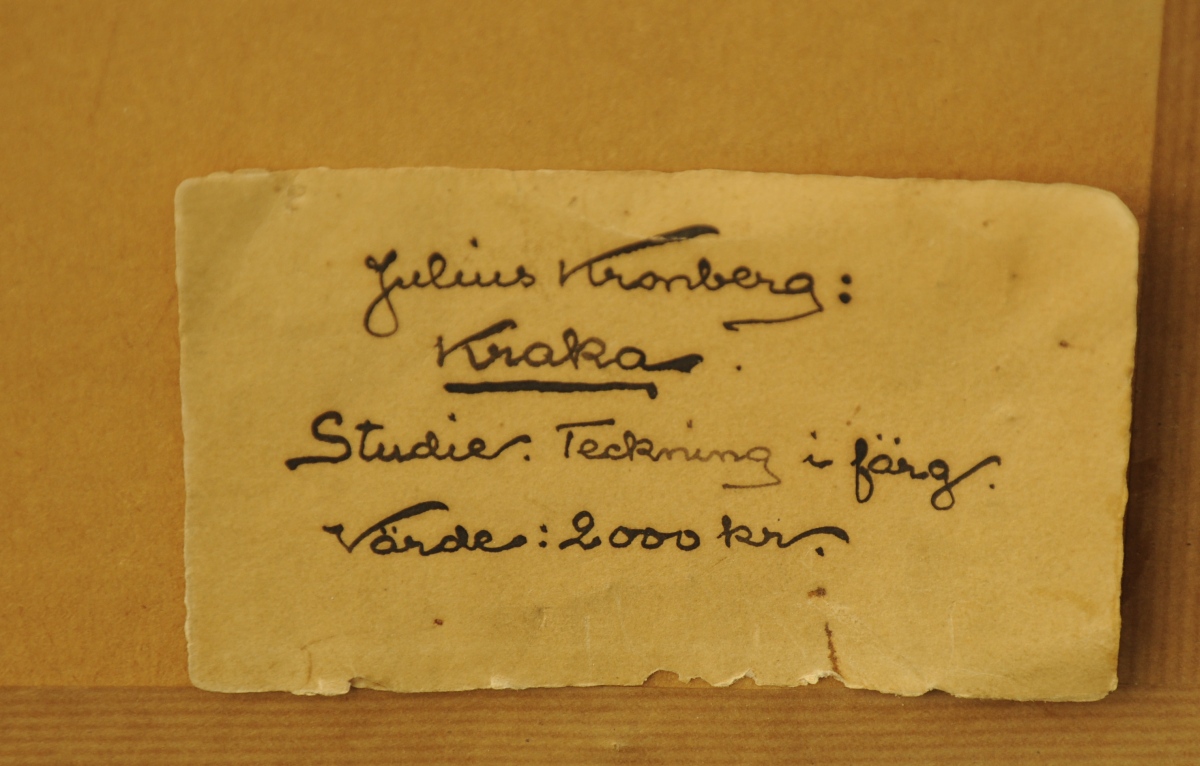 Julius Kronberg:
Kraka.
Studie. Teckning i färg.
Värde: 2000 kr.